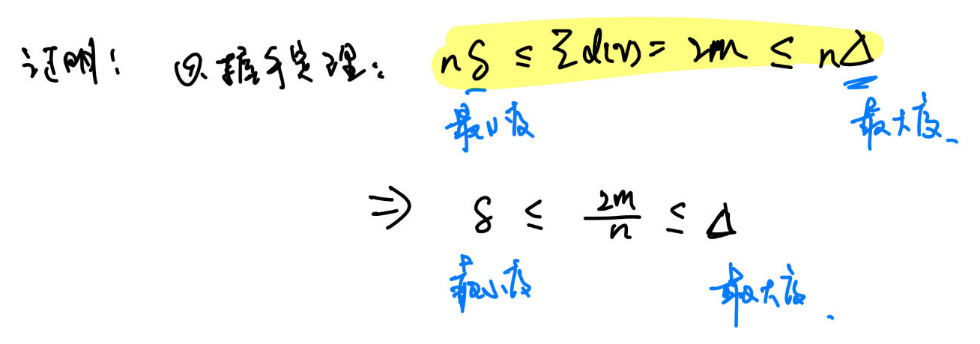 证明: 由握手定理: nδ ≤ Σd(v) = 2m ≤ nΔ
最小度 最大度
⇒ δ ≤ 2m/n ≤ Δ
最小度 最大度.